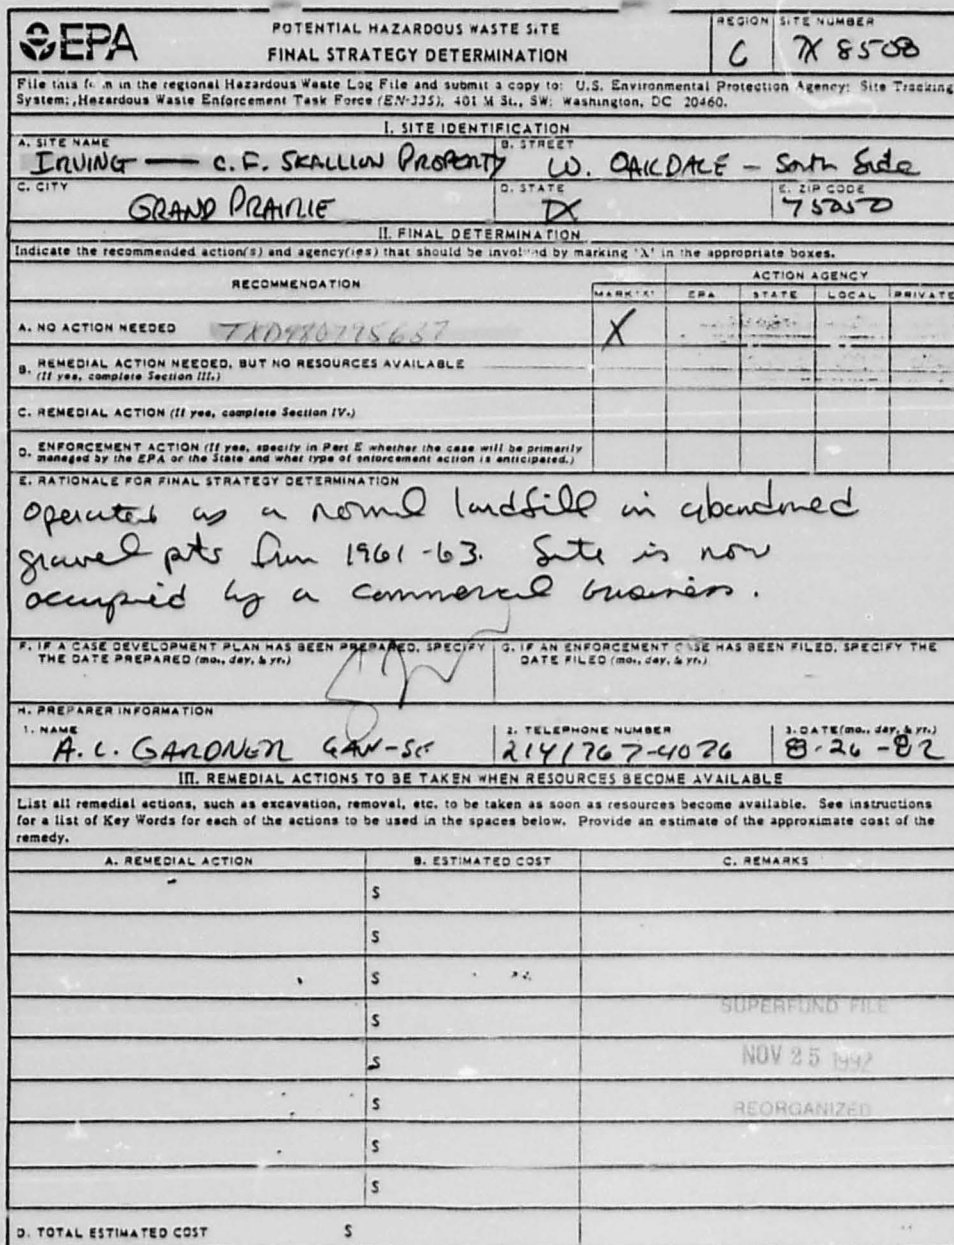 EPA
POTENTIAL HAZARDOUS WASTE SITE
FINAL STRATEGY DETERMINATION
REGION
SITE NUMBER
6
TX 8508
File this form in the regional Hazardous Waste Log File and submit a copy to: U.S. Environmental Protection Agency; Site Tracking
System; Hazardous Waste Enforcement Task Force (EN-335), 401 M St., SW; Washington, DC 20460.
I. SITE IDENTIFICATION
A. SITE NAME
IRVING — C.F. SKALLION PROPERTY
B. STREET
W. OAKDALE - South Side
C. CITY
GRAND PRAIRIE
D. STATE
TX
E. ZIP CODE
75050
II. FINAL DETERMINATION
Indicate the recommended action(s) and agency(ies) that should be involved by marking 'X' in the appropriate boxes.
RECOMMENDATION
MARK 'X'
ACTION AGENCY
EPA
STATE
LOCAL
PRIVATE
A. NO ACTION NEEDED
TXD980795637
X
B. REMEDIAL ACTION NEEDED, BUT NO RESOURCES AVAILABLE
(If yes, complete Section III.)
C. REMEDIAL ACTION (If yes, complete Section IV.)
D. ENFORCEMENT ACTION (If yes, specify in Part E whether the case will be primarily
managed by the EPA or the State and what type of enforcement action is anticipated.)
E. RATIONALE FOR FINAL STRATEGY DETERMINATION
Operated as a normal landfill in abandoned
gravel pits from 1961-63. Site is now
occupied by a commercial business.
F. IF A CASE DEVELOPMENT PLAN HAS BEEN PREPARED, SPECIFY
THE DATE PREPARED (mo., day, & yr.)
G. IF AN ENFORCEMENT CASE HAS BEEN FILED, SPECIFY THE
DATE FILED (mo., day, & yr.)
H. PREPARER INFORMATION
1. NAME
A. C. GARDNER 6AW-SF
2. TELEPHONE NUMBER
214/767-4076
3. DATE (mo., day, & yr.)
8-26-82
III. REMEDIAL ACTIONS TO BE TAKEN WHEN RESOURCES BECOME AVAILABLE
List all remedial actions, such as excavation, removal, etc. to be taken as soon as resources become available. See instructions
for a list of Key Words for each of the actions to be used in the spaces below. Provide an estimate of the approximate cost of the
remedy.
A. REMEDIAL ACTION
B. ESTIMATED COST
C. REMARKS
$
$
$
$
SUPERFUND FILE
$
NOV 25 1992
$
REORGANIZED
$
$
D. TOTAL ESTIMATED COST $